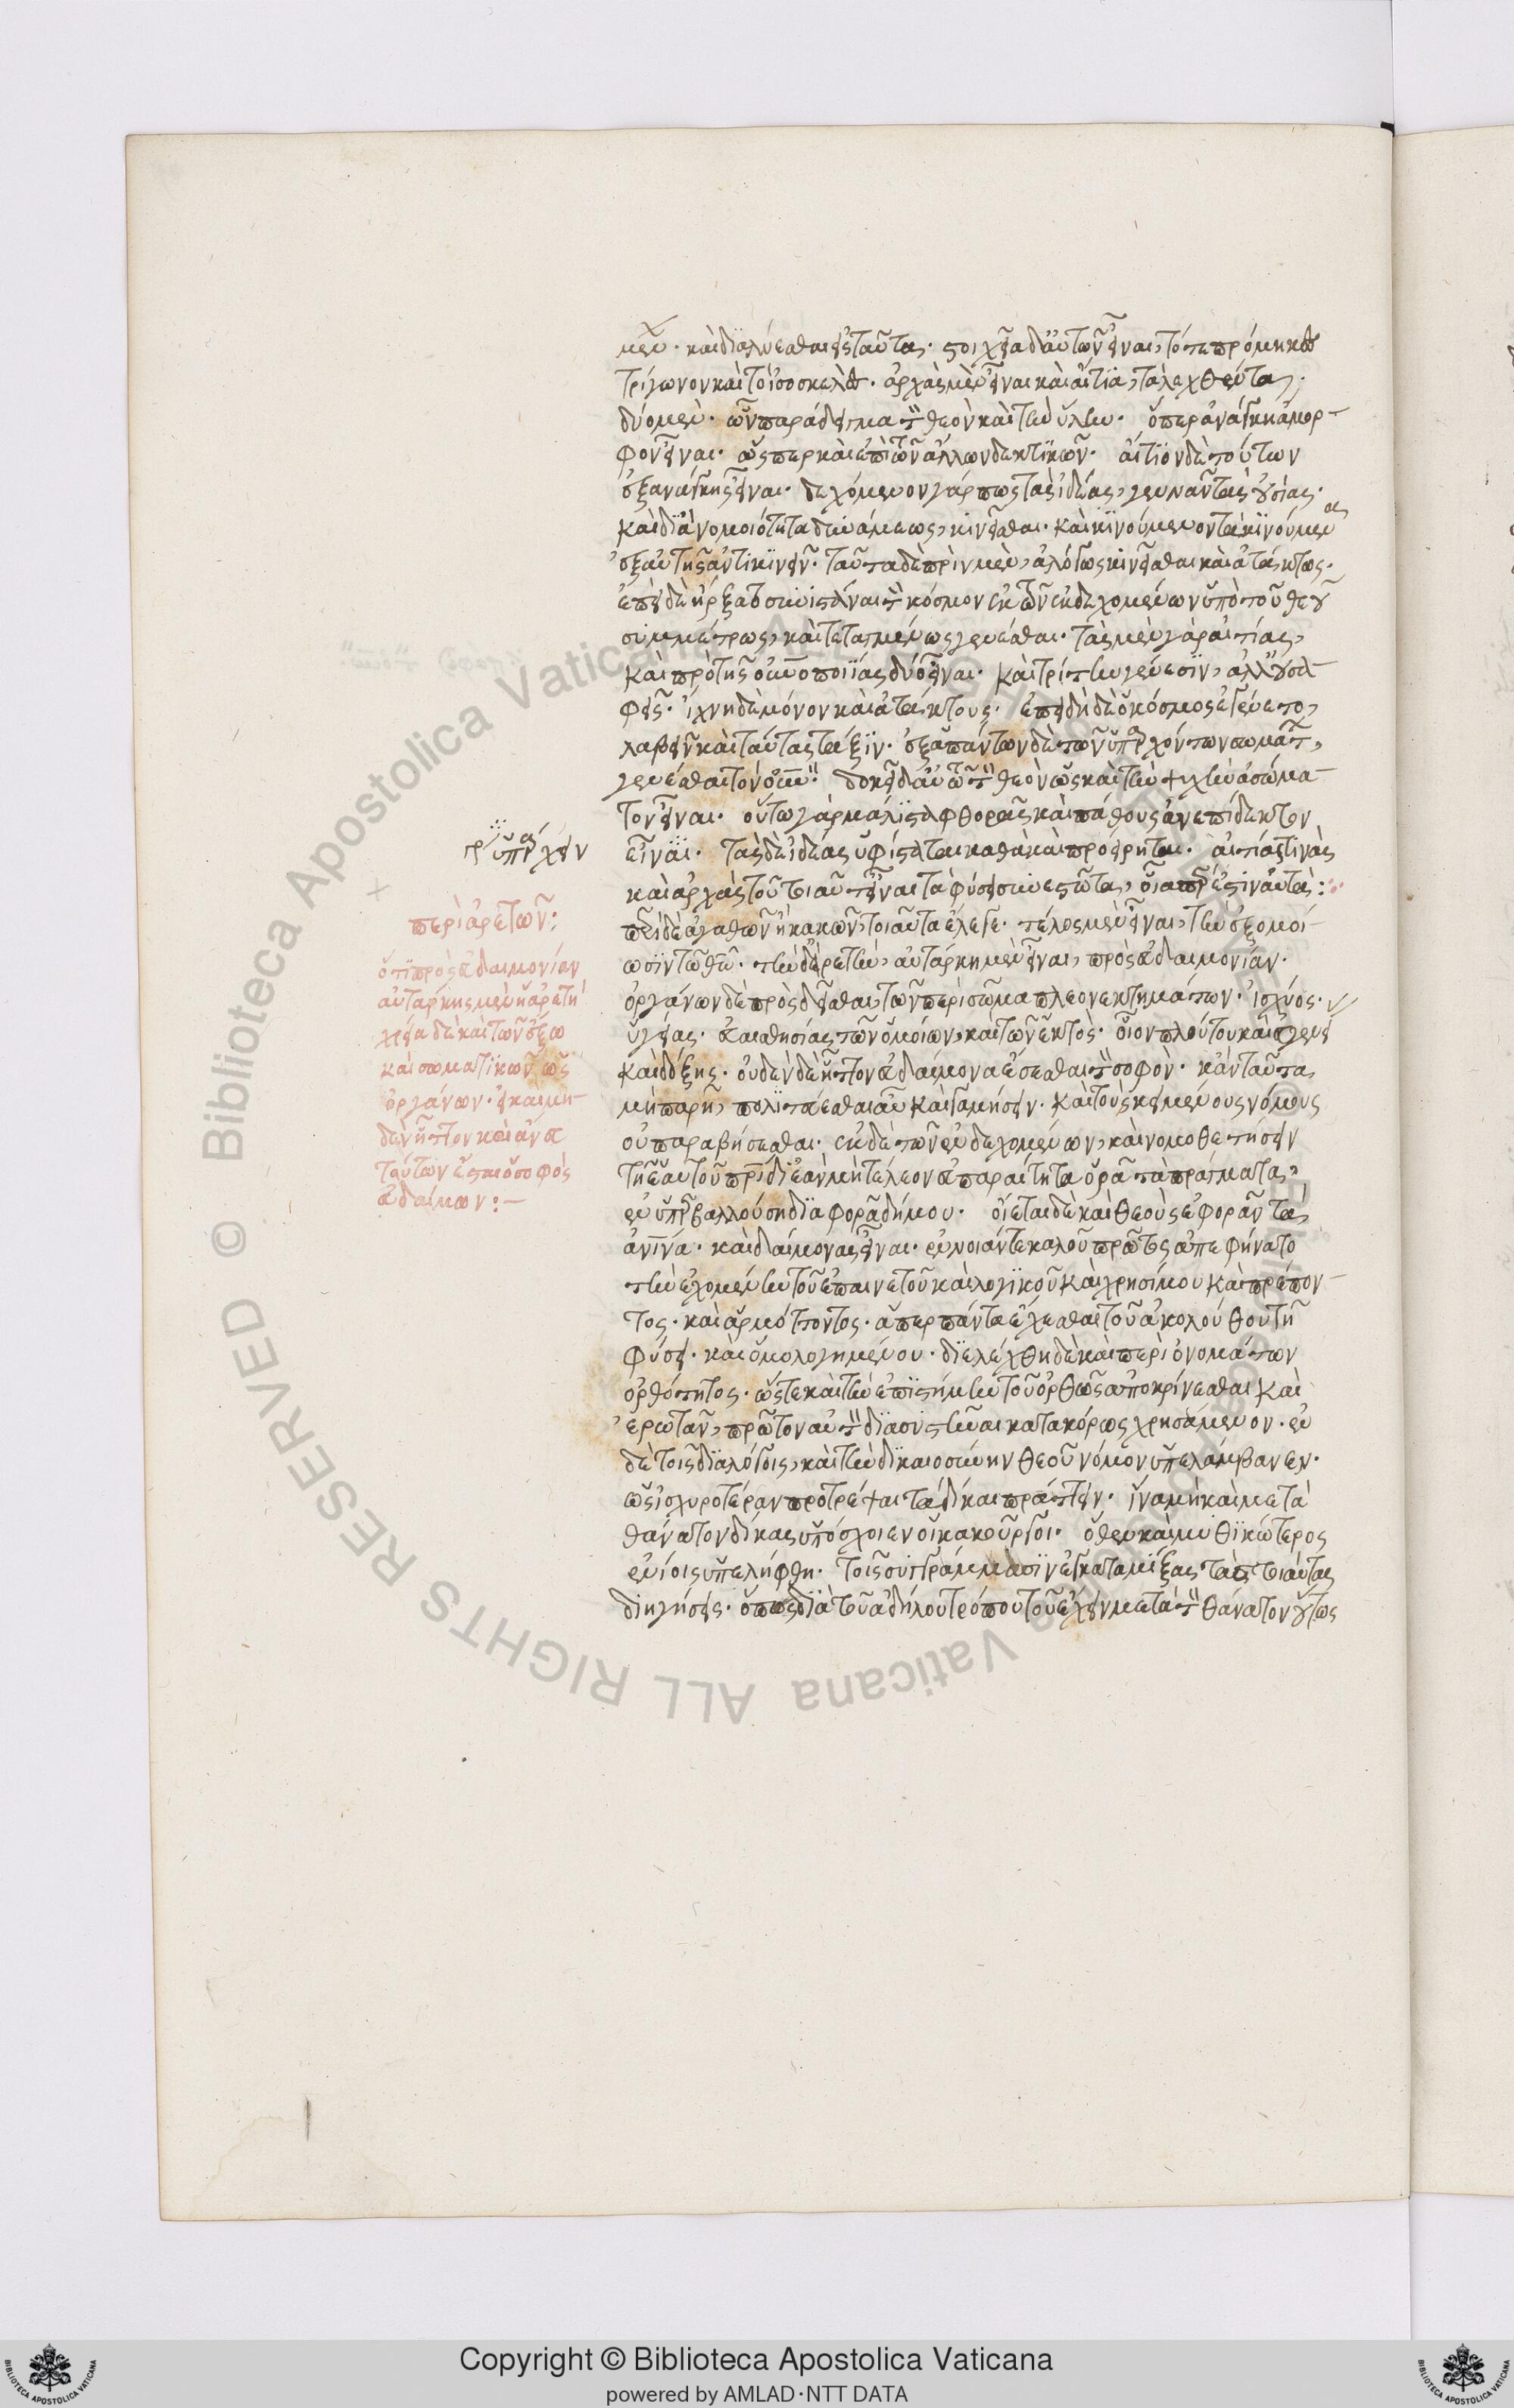 μέν. καὶ διαλύεσθαι εἰς ταῦτα. στοιχεῖα δ' αὐτῶν εἶναι, τό τε πρόμηκες
τρίγωνον καὶ τὸ ἰσοσκελές. ἀρχὰς μὲν εἶναι καὶ αἴτια, τὰ λεχθέντα
δύο μὲν. ὧν παράδειγμα τὸν θεὸν καὶ τὴν ὕλην. ὅπερ ἀνάγκη ἄμορ-
φον εἶναι. ὥσπερ καὶ ἐπὶ τῶν ἄλλων δεκτικῶν. αἴτιον δὲ τούτων
ἐξ ἀνάγκης εἶναι. δεχόμενον γάρ πως τὰς ἰδέας, γεννᾶν τὰς οὐσίας.
καὶ δι' ἀνομοιότητα δυνάμεως, κινεῖσθαι. καὶ κινούμενον τὰ κινούμενα
ἐξ αὐτῆς ἀντικινεῖν. ταῦτα δὲ πρὶν μὲν, ἀλόγως κινεῖσθαι καὶ ἀτάκτως.
ἐπεὶ δὲ ἤρξατο συνιστάναι τὸν κόσμον ἐκ τῶν ἐνδεχομένων ὑπὸ τοῦ θεοῦ
συμμέτρως, καὶ τεταγμένως γενέσθαι. τὰς μὲν γὰρ αἰτίας,
καὶ πρὸ τῆς οὐνοποιΐας δύο εἶναι. καὶ τρίτην γένεσιν, ἀλλ' οὐ σα-
φεῖς. ἴχνη δὲ μόνον καὶ ἀτάκτους. ἐπειδὴ δὲ ὁ κόσμος ἐγένετο,
λαβεῖν καὶ ταύτας τάξιν. ἐξ ἁπάντων δὲ τῶν ὑπαρχόντων σωμάτων,
γενέσθαι τὸν οὐνον. δοκεῖ δ' αὐτῷ τὸν θεὸν ὡς καὶ τὴν ψυχὴν ἀσώμα-
τον εἶναι. οὕτω γὰρ μάλιστα φθορᾶς καὶ πάθους ἀνεπίδεκτον
εἶναι. τὰς δὲ ἰδέας ὑφίσταται καθὰ καὶ προείρηται. αἰτίας τινὰς
καὶ ἀρχὰς τοῦ τοιαῦτ' εἶναι τὰ φύσει συνεστῶτα, οἷά περ ἐστὶν αὐτά:
γρ ὑπάρχειν
περὶ δὲ ἀγαθῶν ἢ κακῶν, τοιαῦτα ἔλεγε. τέλος μὲν εἶναι, τὴν ἐξομοί-
ωσιν τῷ θεῷ. τὴν δ' ἀρετὴν, αὐτάρκη μὲν εἶναι, πρὸς εὐδαιμονίαν.
ὀργάνων δὲ προσδεῖσθαι, τῶν περὶ σῶμα πλεονεκτημάτων. ἰσχύος.
ὑγείας. εὐαισθησίας τῶν ὁμοίων, καὶ τῶν ἐκτός. οἷον πλούτου καὶ εὐγενεί
καὶ δόξης. οὐδὲν δὲ ἧττον εὐδαίμονα ἔσεσθαι τὸν σοφόν. κἂν ταῦτα
μὴ παρῇ, πολιτεύεσθαι αὖ καὶ γαμήσειν. καὶ τοὺς κειμένους νόμους
οὐ παραβήσεσθαι. ἐκ δὲ τῶν ἐνδεχομένων, καὶ νομοθετήσειν
τῇ ἑαυτοῦ πατρίδι ἐὰν μὴ τέλεον εὐπαραίτητα ὁρᾷ τὰ πράγματα,
ἐν ὑπερβαλλούσῃ διαφορᾷ δήμου. οἴεται δὲ καὶ θεοὺς ἐφορᾶν τὰ
ἀνινά. καὶ δαίμονας εἶναι. ἔννοιάν τε καλοῦ πρῶτος ἀπεφήνατο
τὴν ἐχομένην τοῦ ἐπαινετοῦ καὶ λογικοῦ καὶ χρησίμου καὶ πρέπον-
τος. καὶ ἁρμόττοντος. ἅπερ πάντα ἔχεσθαι τοῦ ἀκολούθου τῇ
φύσει. καὶ ὁμολογημένου. διελέχθη δὲ καὶ περὶ ὀνομάτων
ὀρθότητος. ὥστε καὶ τὴν ἐπιστήμην τοῦ ὀρθῶς ἀποκρίνεσθαι καὶ
ἐρωτᾶν, πρῶτον αὐτὸν διασυστῆναι κατακόρως χρησάμενον. ἐν
δὲ τοῖς διαλόγοις, καὶ τὴν δικαιοσύνην θεοῦ νόμον ὑπελάμβανεν.
ὡς ἰσχυροτέραν προτρέψαι τὰ δίκαια πράττειν. ἵνα μὴ καὶ μετὰ
θάνατον δίκας ὑπόσχοιεν οἱ κακοῦργοι. ὅθεν καὶ μυθικώτερος
ἐνίοις ὑπελήφθη. τοῖς συγγράμμασιν ἐγκαταμίξας τὰς τοιαύτας
διηγήσεις. ὅπως διὰ τοῦ ἀδήλου τρόπου τοῦ ἔχειν μετὰ τὸν θάνατον οὕτως
περὶ ἀρετῶν:
ὅτι πρὸς εὐδαιμονίαν
αὐτάρκης μὲν ἡ ἀρετή
χρεία δὲ καὶ τῶν ἔξω
καὶ σωματικῶν ὡς
ὀργάνων. εἰ καὶ μη-
δὲν ἧττον καὶ ἄνευ
τούτων ἔσται ὁ σοφὸς
εὐδαίμων:-
Copyright © Biblioteca Apostolica Vaticana
powered by AMLAD·NTT DATA
© Biblioteca Apostolica Vaticana ALL RIGHTS RESERVED